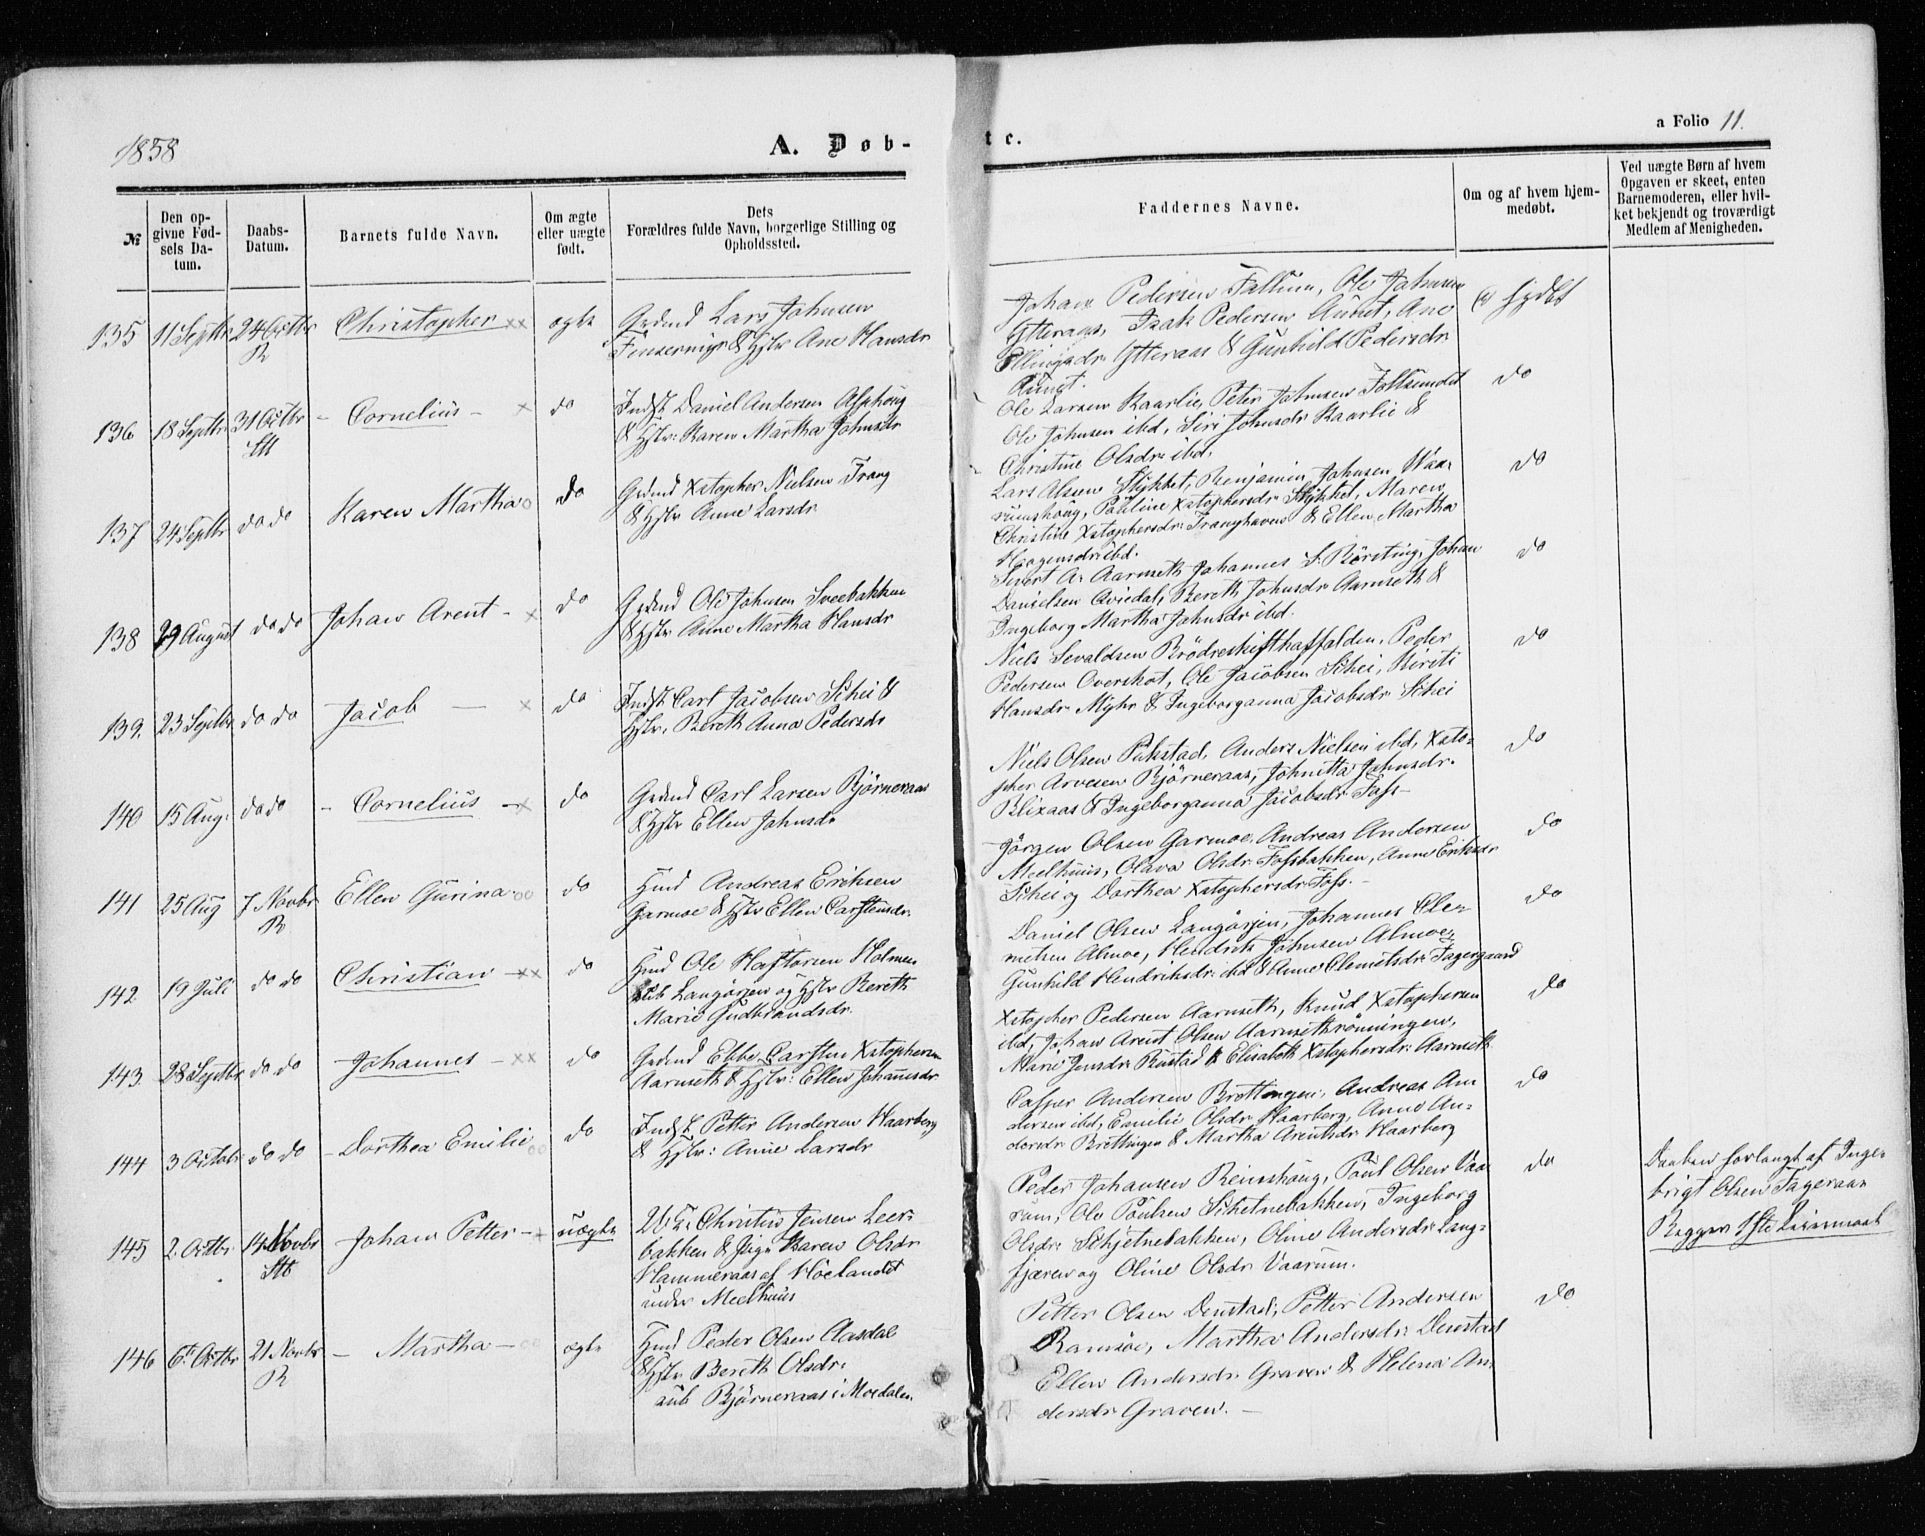 1858
A. Døb-
te.
a Folio 11.
№
Den op-
givne Fød-
sels Da-
tum.
Daabs-
Datum.
Barnets fulde Navn.
Om ægte
eller uægte
født.
Dets
Forældres fulde Navn, borgerlige Stilling og
Opholdssted.
Faddernes Navne.
Om og af hvem hjem-
medøbt.
Ved uægte Børn af hvem
Opgaven er skeet, enten
Barnemoderen, eller hvil-
ket bekjendt og troværdigt
Medlem af Menigheden.
135 11 Septbr 24 Octbr Christopher xx ægte
R
Grdmd Lars Johnsen
& Hstr Ane Hansdr
Johan Pedersen Fallun, Ole Johnsen
Ytteraas, Isak Pedersen Aunet, Ane
Ellingsdr Ytteraas & Gunhild Pedersdr
Aunet.
136 18 Septbr 31 Octbr - Cornelius - x do
Indst Daniel Andersen Alphoug
& Hstr: Karen Martha Johnsdr
Ole Larsen Kaarlie, Peter Johnsen
Ole Johnsen ibd, Siri Johnsdr Kaarlie &
Christine Olsdr ibd.
do
137 24 Septbr do do Karen Martha o do
Grdmd Xstopher Nielsen Trang
& Hstr Anne Larsdr
Lars Olsen Stykket, Benjamin Johnsen Waa-
rumshoug, Pauline Xstophersdr Stykket, Maren
Christine Xstophersdr Tranghaven & Ellen Martha
Haagensdr ibd.
do
138 29 August do do Johan Arent - x do
Grdmd Ole Johnsen Sveebakken
& Hstr Anne Martha Hansdr
Sivert A. Aarnseth, Johannes S. Børsting, Johan
Danielsen Qviedal, Bereth Johnsdr Aarnseth &
Ingeborg Martha Johnsdr ibd.
do
139. 23 Septbr do do Jacob - x do
Indst Carl Jacobsen Schei &
Hstr, Bereth Anna Pedersdr
Niels Sevaldsen Peder
Pedersen Overskot, Ole Jacobsen Schei, Kirsti
Hansdr Myhr & Ingeborganna Jacobsdr Schei
do
140 15 Aug. do do - Cornelius - x do
Grdmd Carl Larsen Bjørneraas
& Hstr Ellen Johnsdr
Niels Olsen Pukstad, Anders Nielsen ibd, Xsto-
pher Arvesen Bjørneraas, Johnitta Johnsdr.
Blixaas & Ingeborganna Jacobsdr Foss-
do
141 25 Aug 7 Novbr Ellen Gurina oo do
R
Hmd Andreas Eriksen
Garmoe & Hstr Ellen Carstensdr.
Jørgen Olsen Garmoe, Andreas Andersen
Meelhuus, Olava Olsdr Fossbakken, Anne Eriksdr
Schei og Dorthea Xstophersdr Foss. -
do
142. 19 Juli do do Christian - xx do
Hmd Ole Haftorsen Holmen
Langørjen og Hstr Bereth
Marie Gudbrandsdr.
Daniel Olsen Langørjen, Johannes Cle-
metsen Almoe, Hendrik Johnsen Almoe,
Gunhild Hendriksdr. ibd & Anne Clemetsdr: Fagergaard
do
143. 28 Septbr do do Johannes - xx do
Grdmd Ebbe Carsten Xstophersen
Aarnseth & Hstr: Ellen Johannesdr
Xstopher Pedersen Aarnseth, Knud Xstophersen
ibd, Johan Arent Olsen Aarnsethrønningen,
Marie Jensdr Rustad & Elisabeth Xstophersdr: Aarnseth
do
144 3 Octobr do do - Dorthea Emilie oo do
Indst Petter Andersen Haarberg
& Hstr: Anne Larsdr
Casper Andersen Brettingen, Andreas An
dersen ibd, Emilie Olsdr Haarberg, Anne An-
dersdr Brettingen & Martha Arentsdr Haarberg
do
145 2 Octbr. 14 Novbr Johan Petter - x uægte
Stb
Christen Jensen Leer-
bakken & Pige Karen Olsdr
Hammeraas af Høelandet
under Meelhuus
Peder Johansen Reinshoug, Paul Olsen Vaa
rum, Ole Paulsen Schetnebakken, Ingeborg
Olsdr Schjetnebakken, Oline Andersdr Lang-
fjæren og Oline Olsdr Vaarum.
do
Daaben forlangt af Inge-
brigt Olsen Fageraas
Begges 1ste Leiermaal
146 6t Octbr 21 Novbr - Martha - oo ægte
R
Hmd Peder Olsen Aasdal
& Hstr Bereth Olsdr.
Bjørneraas i Moedalen
Petter Olsen Denstad, Petter Andersen
Ramsøe, Martha Andersdr Denstad
Ellen Andersdr Graven & Helena An-
dersdr Graven. -
do